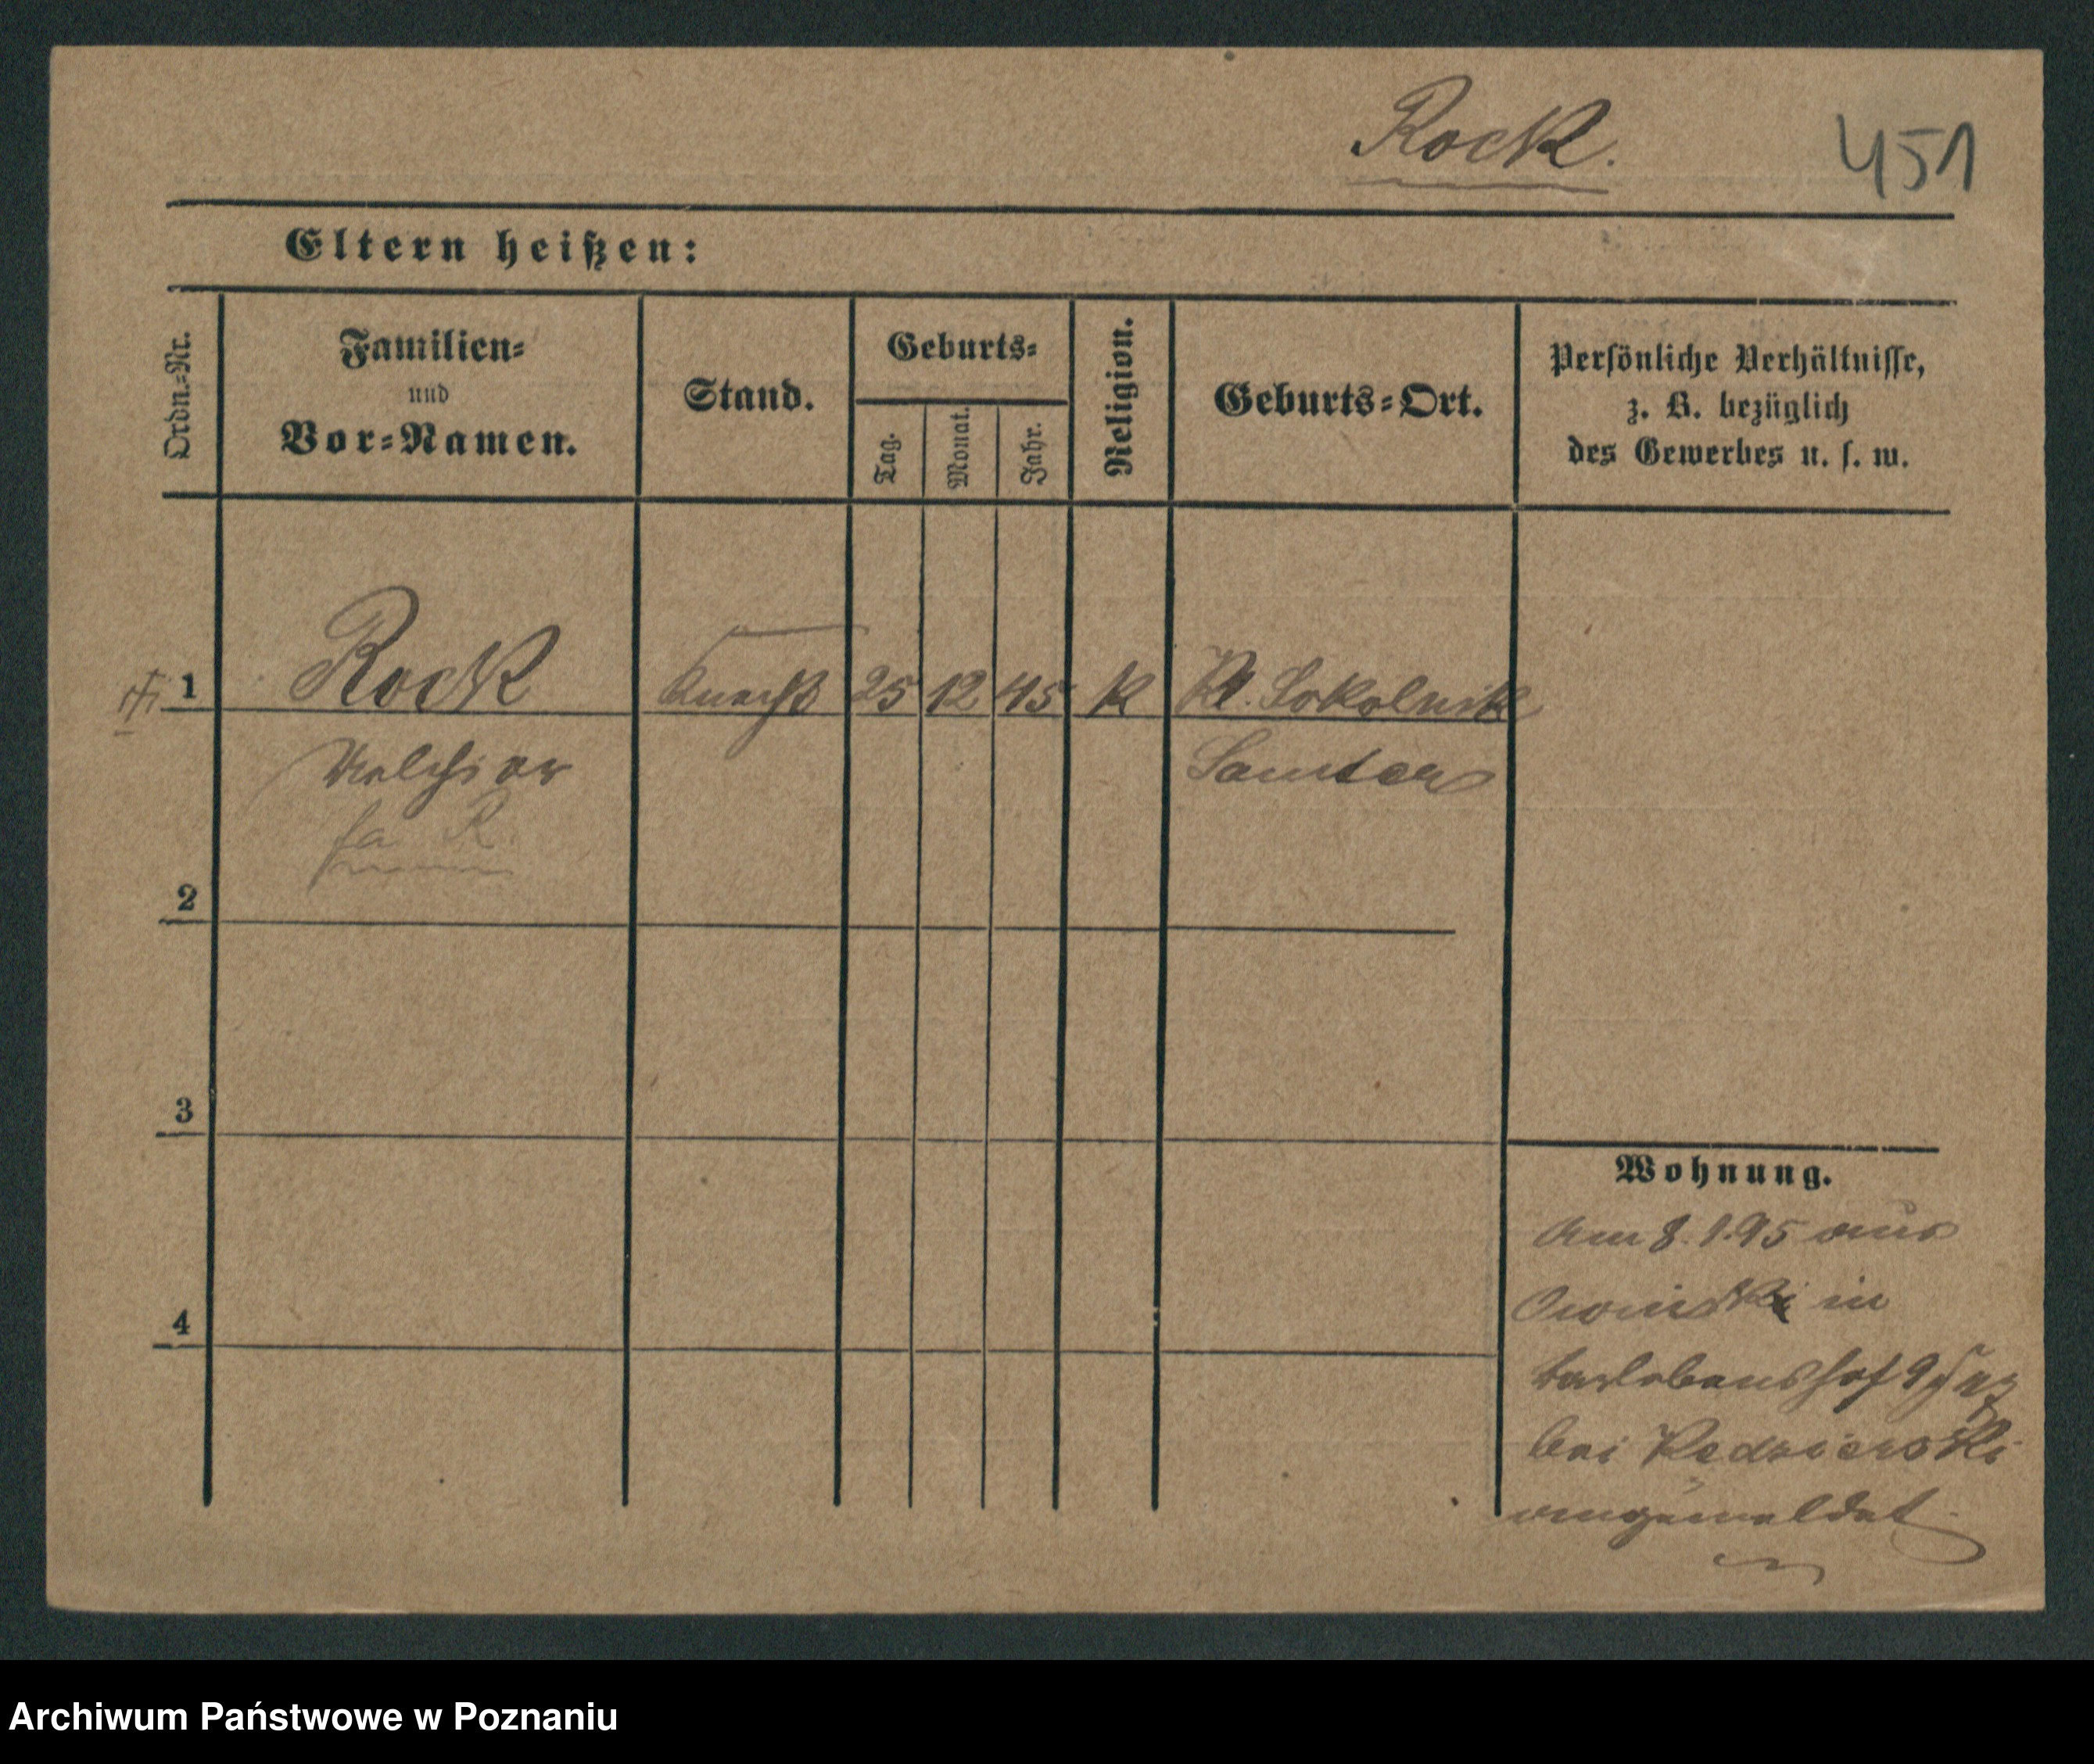 Rock.
451
Eltern heißen:
Ordn.-Nr.
Familien-
und
Vor-Namen.
Stand.
Geburts-
Tag.
Monat.
Jahr.
Religion.
Geburts-Ort.
Persönliche Verhältnisse,
z. B. bezüglich
des Gewerbes u. s. w.
1 Rock Knecht 25 12 45 k Kl. Sokolnik
Melchior Samter
2
3
4
Wohnung.
Am 8.1.95 aus
Owinsk in
bei
angemeldet
Archiwum Państwowe w Poznaniu